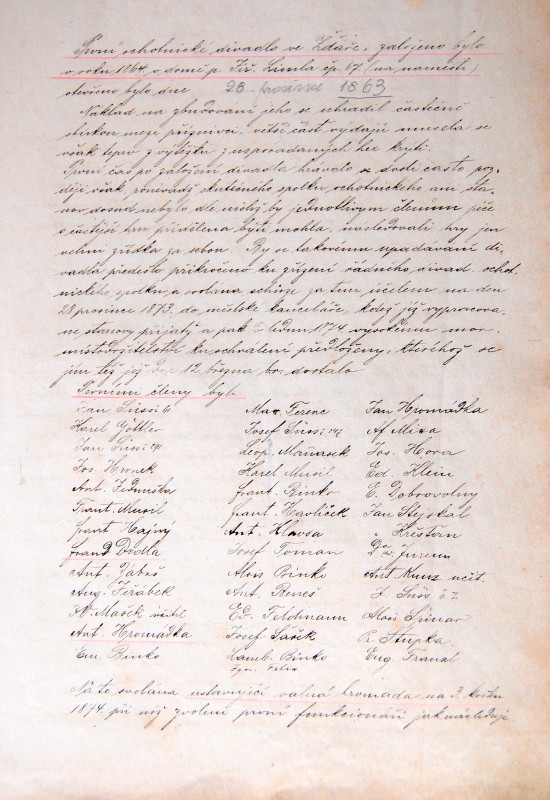 První ochotnické divadlo ve Žďáře, založeno bylo
v roku 1864, v domě p. Jiř. Limla čp. 67. (na náměstí)
otevřeno bylo dne 28. prosince 1863
Náklad na zbudování jeho se uhradil částečně
sbírkou mezi příznivci, větší část výdajů musela se
však teprv z výtěžku z uspořádaných her krýti.
První čas po založení divadla hrávalo se dosti často poz-
ději však, poněvadž skutečného spolku ochotnického ani sta-
nov dosud nebylo, dle nichž by jednotlivým členům péče
o častější hru přidělena býti mohla, následovaly hry jen
velmi zřídka za sebou. By se takovému upadávání di-
vadla předešlo přikročeno ku zřízení řádného divad. ochot-
nického spolku a svolána schůze za tím účelem na den
28 prosince 1873, do městské kanceláře, kdež již vypracova-
né stanovy přijaty a pak v lednu 1874 vysokému mor.
místodržitelství ku schválení předloženy, kteréhož se
jim též již dne 12. března dostalo
Prvními členy byli
Jan Süss Max. Ferenc Jan Hromádka
Karel Göttler Josef Süss Af Mixa
Jan Süss Leop. Maňásek Jos. Hora
Jos. Hronek Karel Musil Ed. Klein
Ant. Jedlička Frant. Binko E. Dobrovolny
Frant. Musil Frant. Havlíček Jan Stejskál
Frant Hajný Ant. Hlavsa
Franc Dódla Josef Toman
Ant. Zábeš Alois Binko Ant. Kunz učit.
Aug. Jeřábek Ant. Beneš
Mašek učitel Ed. Feldmann Alois
Ant. Hromádka Josef Sášek Stupka
Em. Binko Lamb. Binko Eug.
Na to svolána ustavující valná hromada na
1874 při níž zvoleni první funkcionáři jak následuje